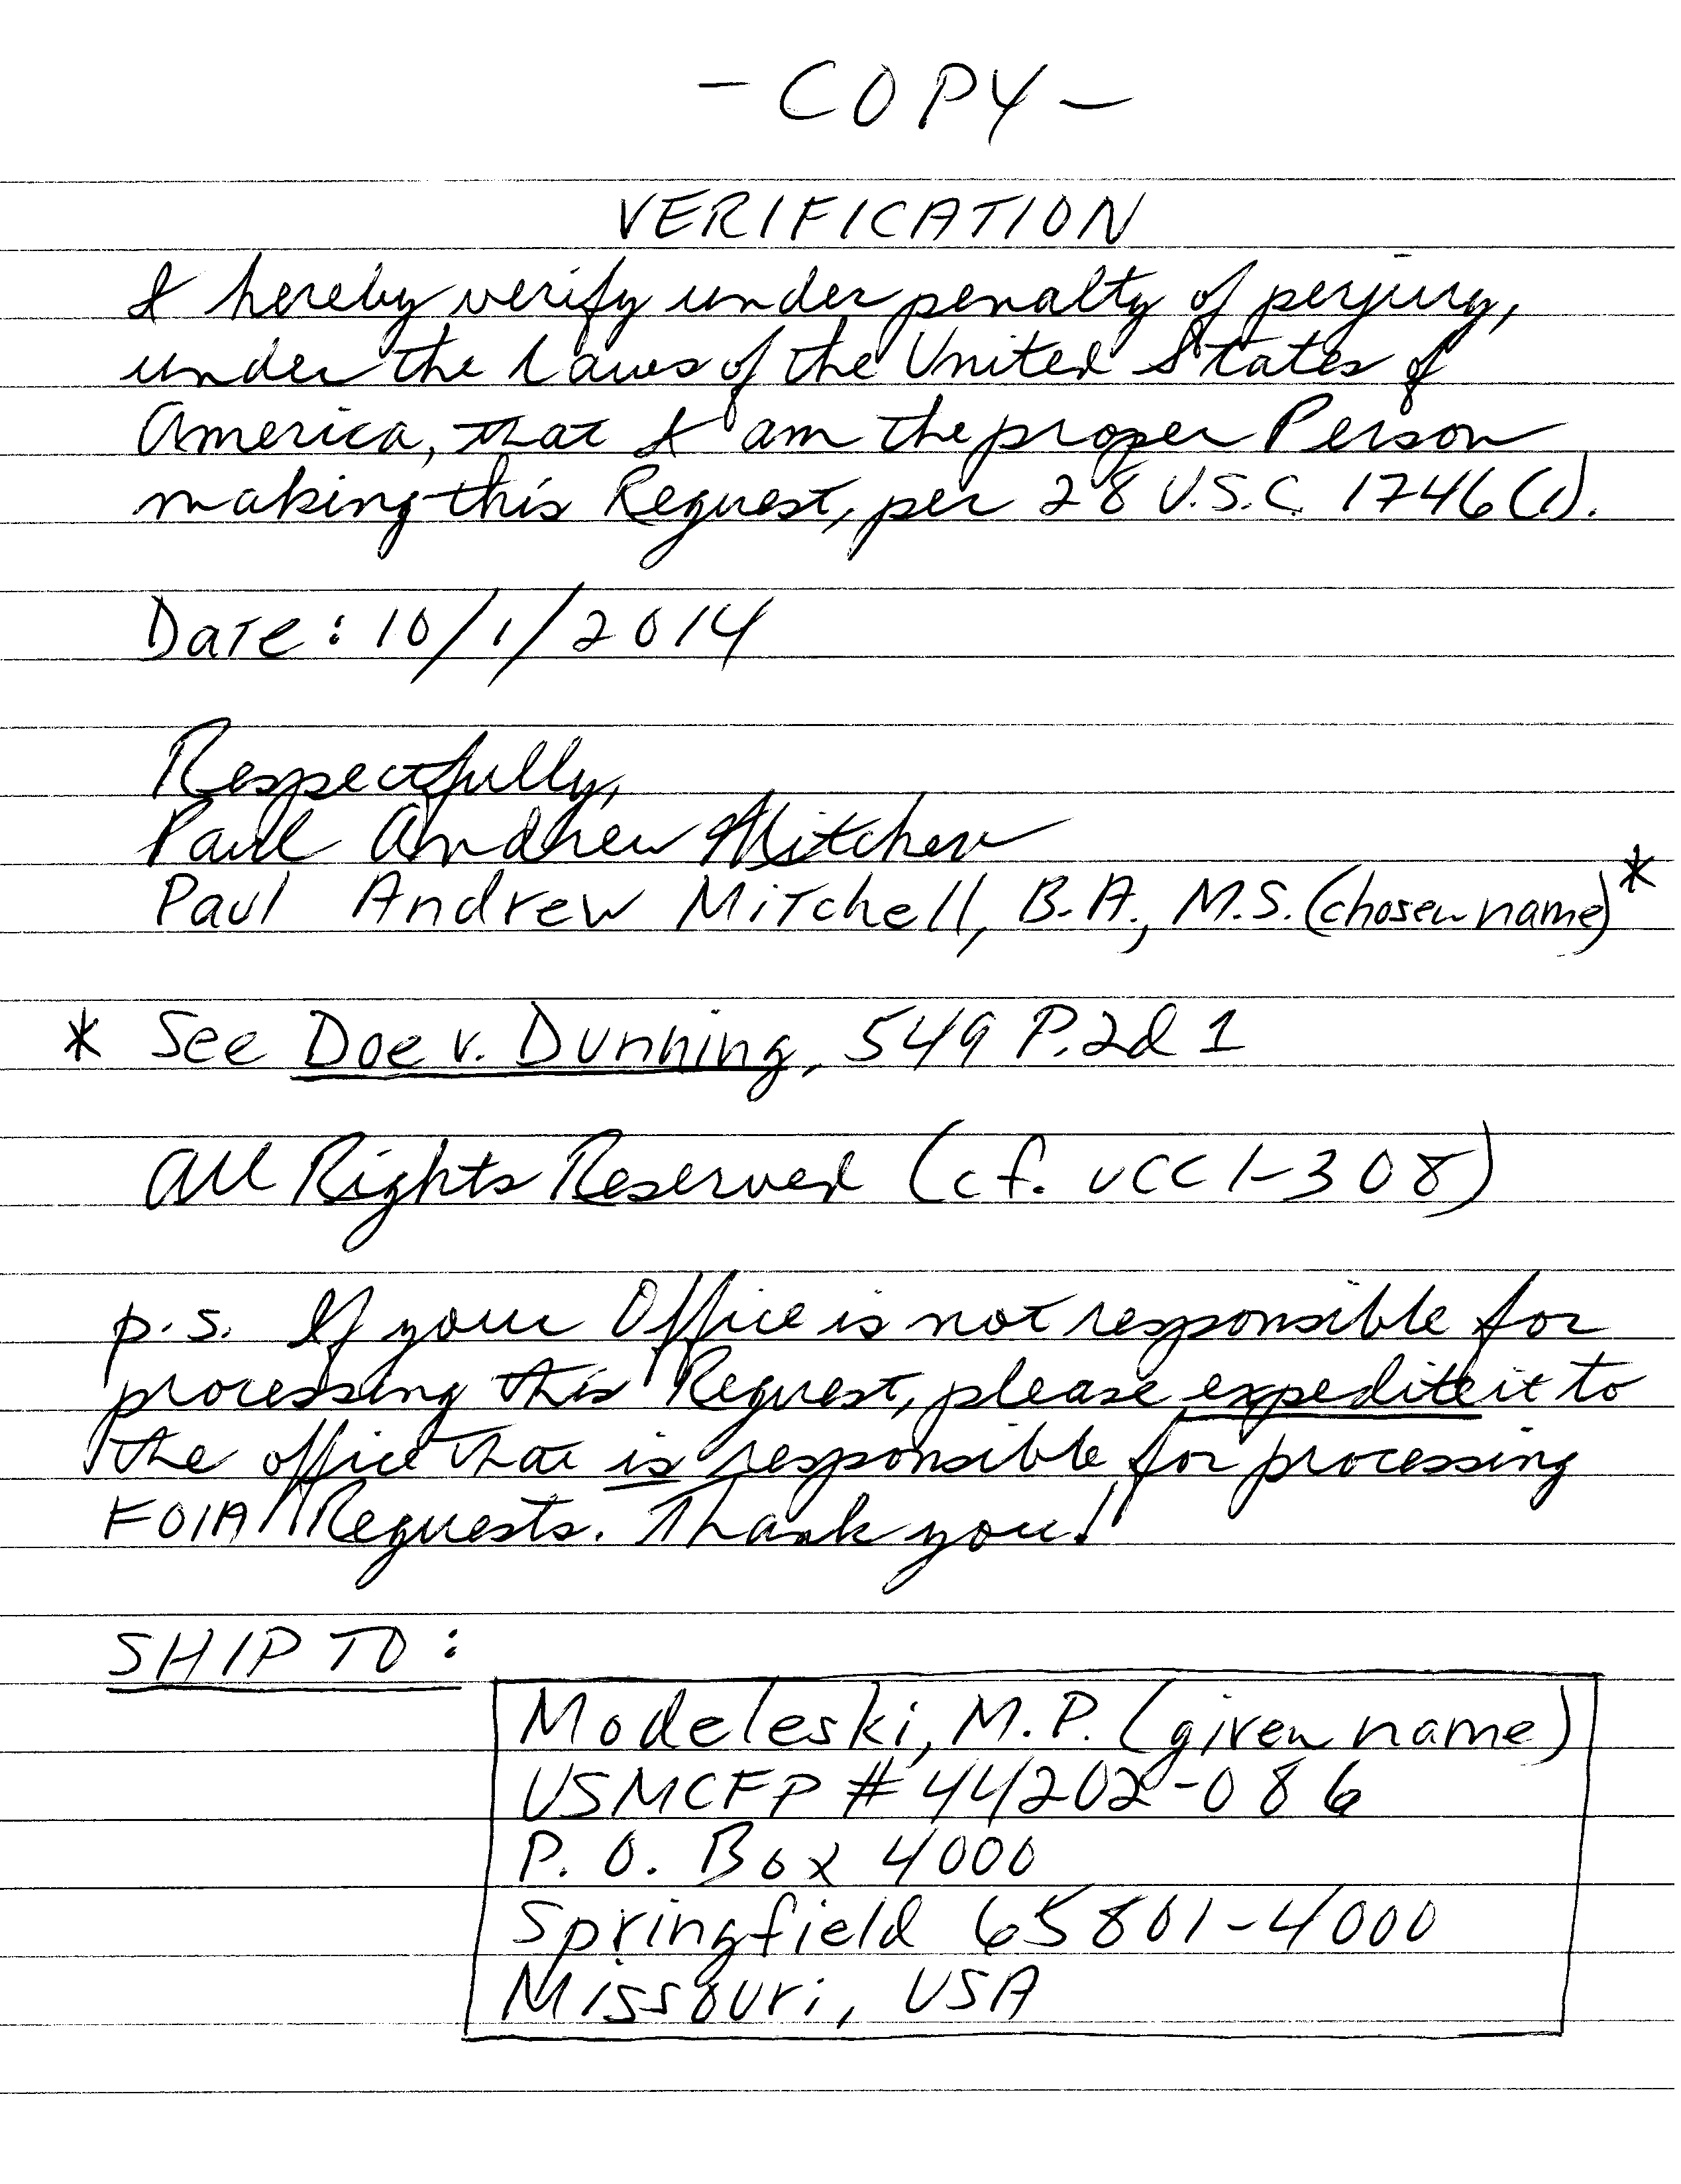 - COPY -
VERIFICATION
I hereby verify under penalty of perjury,
under the Laws of the United States of
America, that I am the proper Person
making this Request, per 28 U.S.C. 1746(1).
Date: 10/1/2014
Respectfully,
Paul Andrew Mitchell
Paul Andrew Mitchell, B.A., M.S. (chosen name)*
* See Doe v. Dunning, 549 P.2d 1
All Rights Reserved (cf. UCC 1-308)
p.s. If your Office is not responsible for
processing this Request, please expedite it to
the office that is responsible for processing
FOIA Requests. Thank you!
SHIP TO:
Modeleski, M.P. (given name)
USMCFP # 44202-086
P.O. Box 4000
Springfield 65801-4000
Missouri, USA